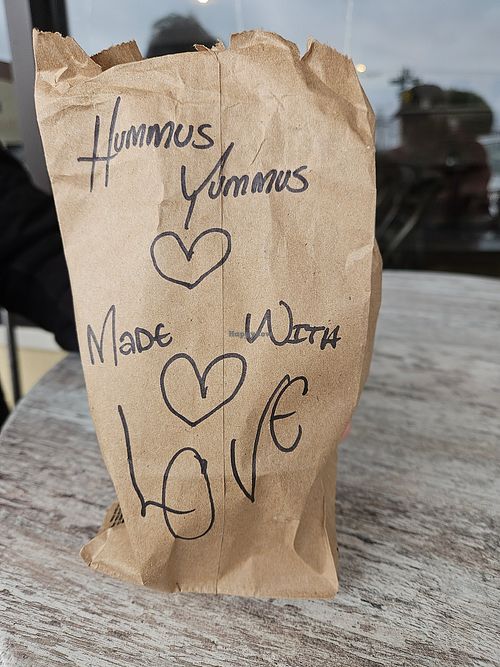 Hummus
Yummus
Made With
Love